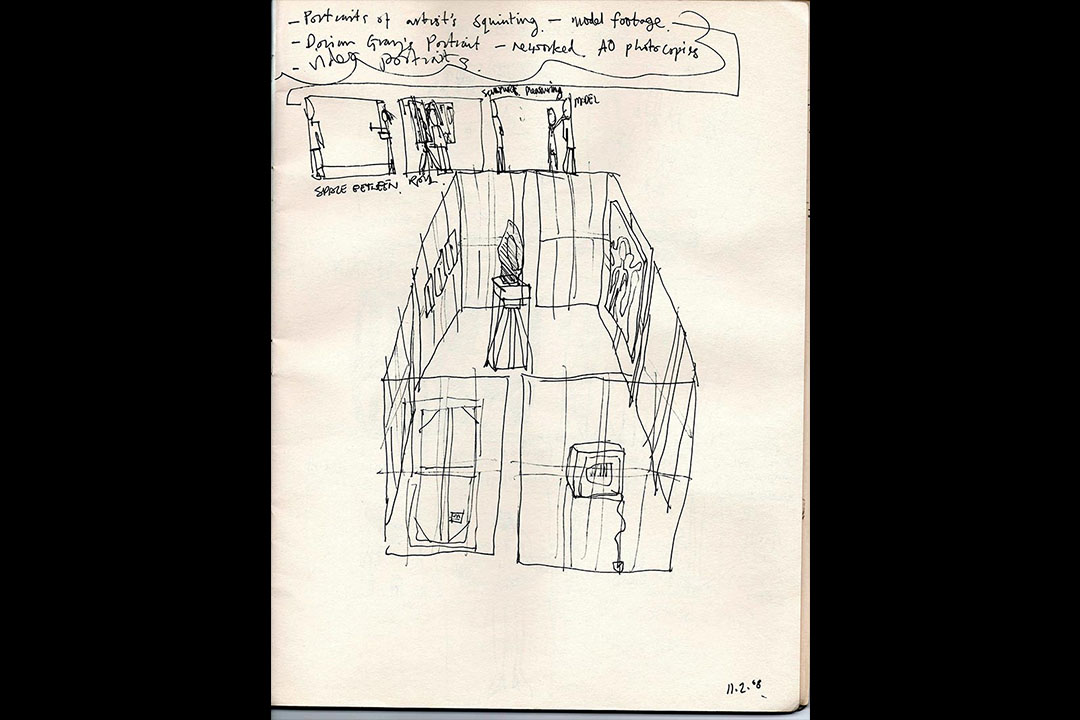 - Portraits of artist's squinting - model footage.
- Dorian Gray's Portrait - reworked A0 photocopies
- Video portraits.
measuring
MODEL
SPACE BETWEEN.